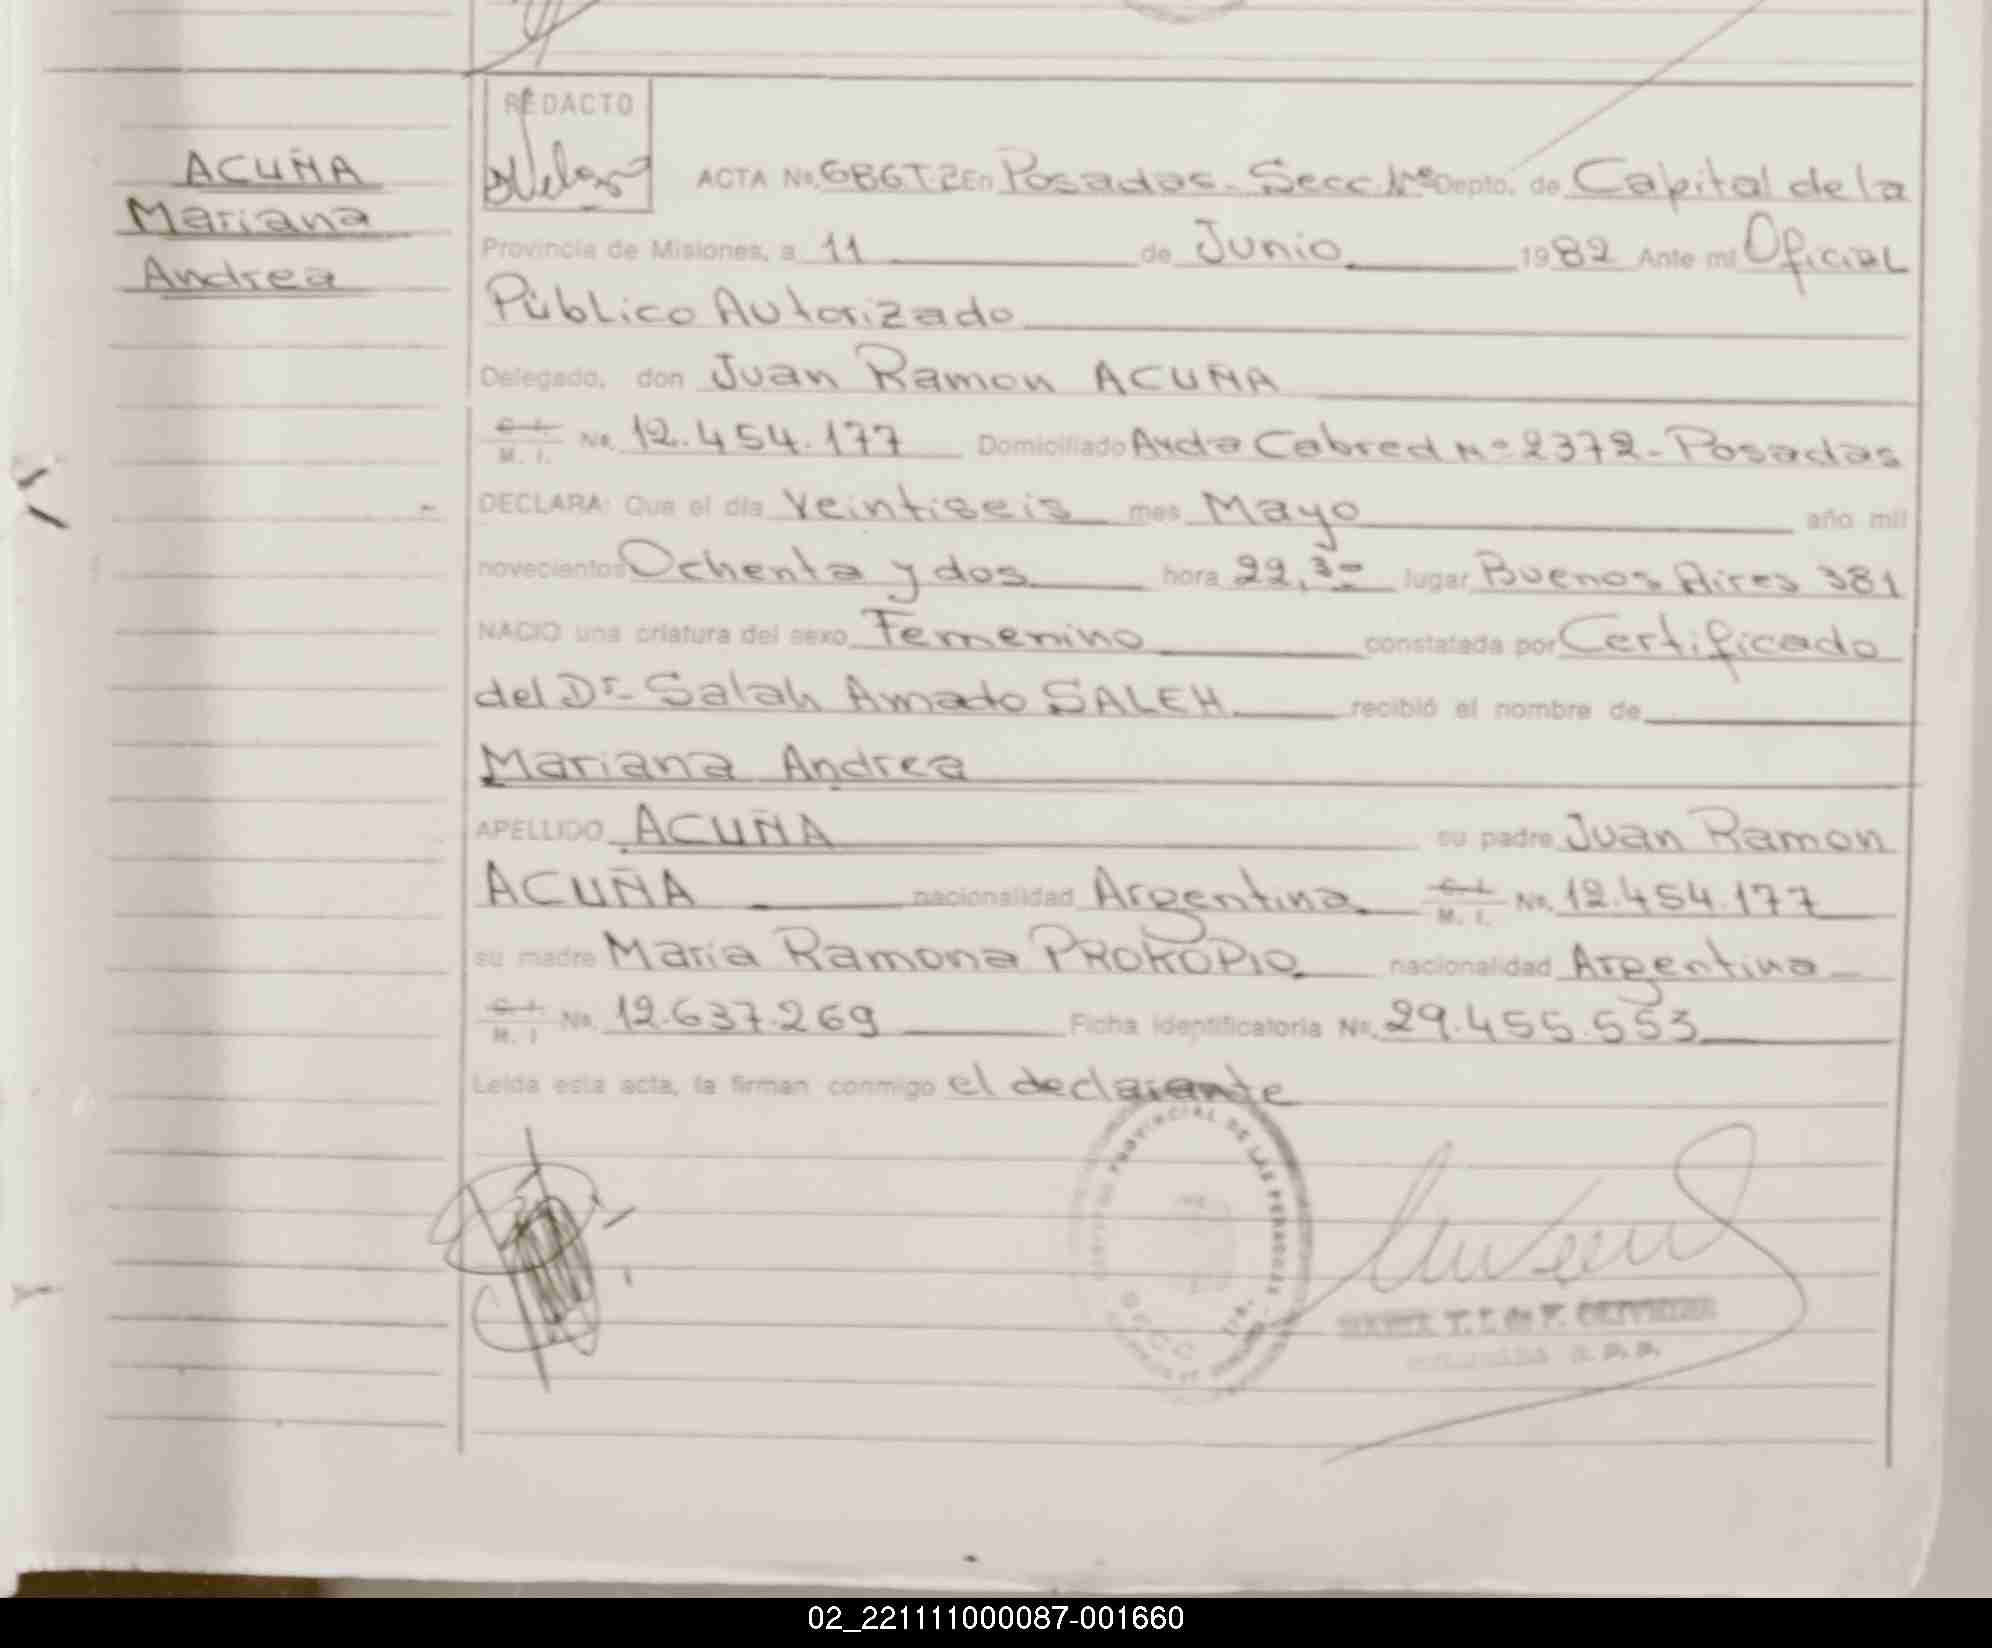 REDACTO
ACUÑA
Mariana
Andrea
ACTA No. 686T.2 En Posadas. Secc. 1ra Depto. de Capital de la
Provincia de Misiones, a 11 de Junio 1982 Ante mí Oficial
Público Autorizado
Delegado, don Juan Ramon ACUÑA
C. I.
M. I. No. 12.454.177 Domiciliado Avda Cabred No 2372 - Posadas
DECLARA: Que el día Veintiseis mes Mayo año mil
novecientos Ochenta y dos hora 22,30 lugar Buenos Aires 381
NACIO una criatura del sexo Femenino constatada por Certificado
del Dr. Salah Amado SALEH recibió el nombre de
Mariana Andrea
APELLIDO ACUÑA su padre Juan Ramon
ACUÑA nacionalidad Argentina C. I. M. I. No. 12.454.177
su madre María Ramona PROKOPIO nacionalidad Argentina
C. I. M. I No. 12.637.269 Ficha identificatoria No. 29.455.553
Leída esta acta, la firman conmigo el declarante
PROVINCIAL DE LAS PERSONAS
02_221111000087-001660